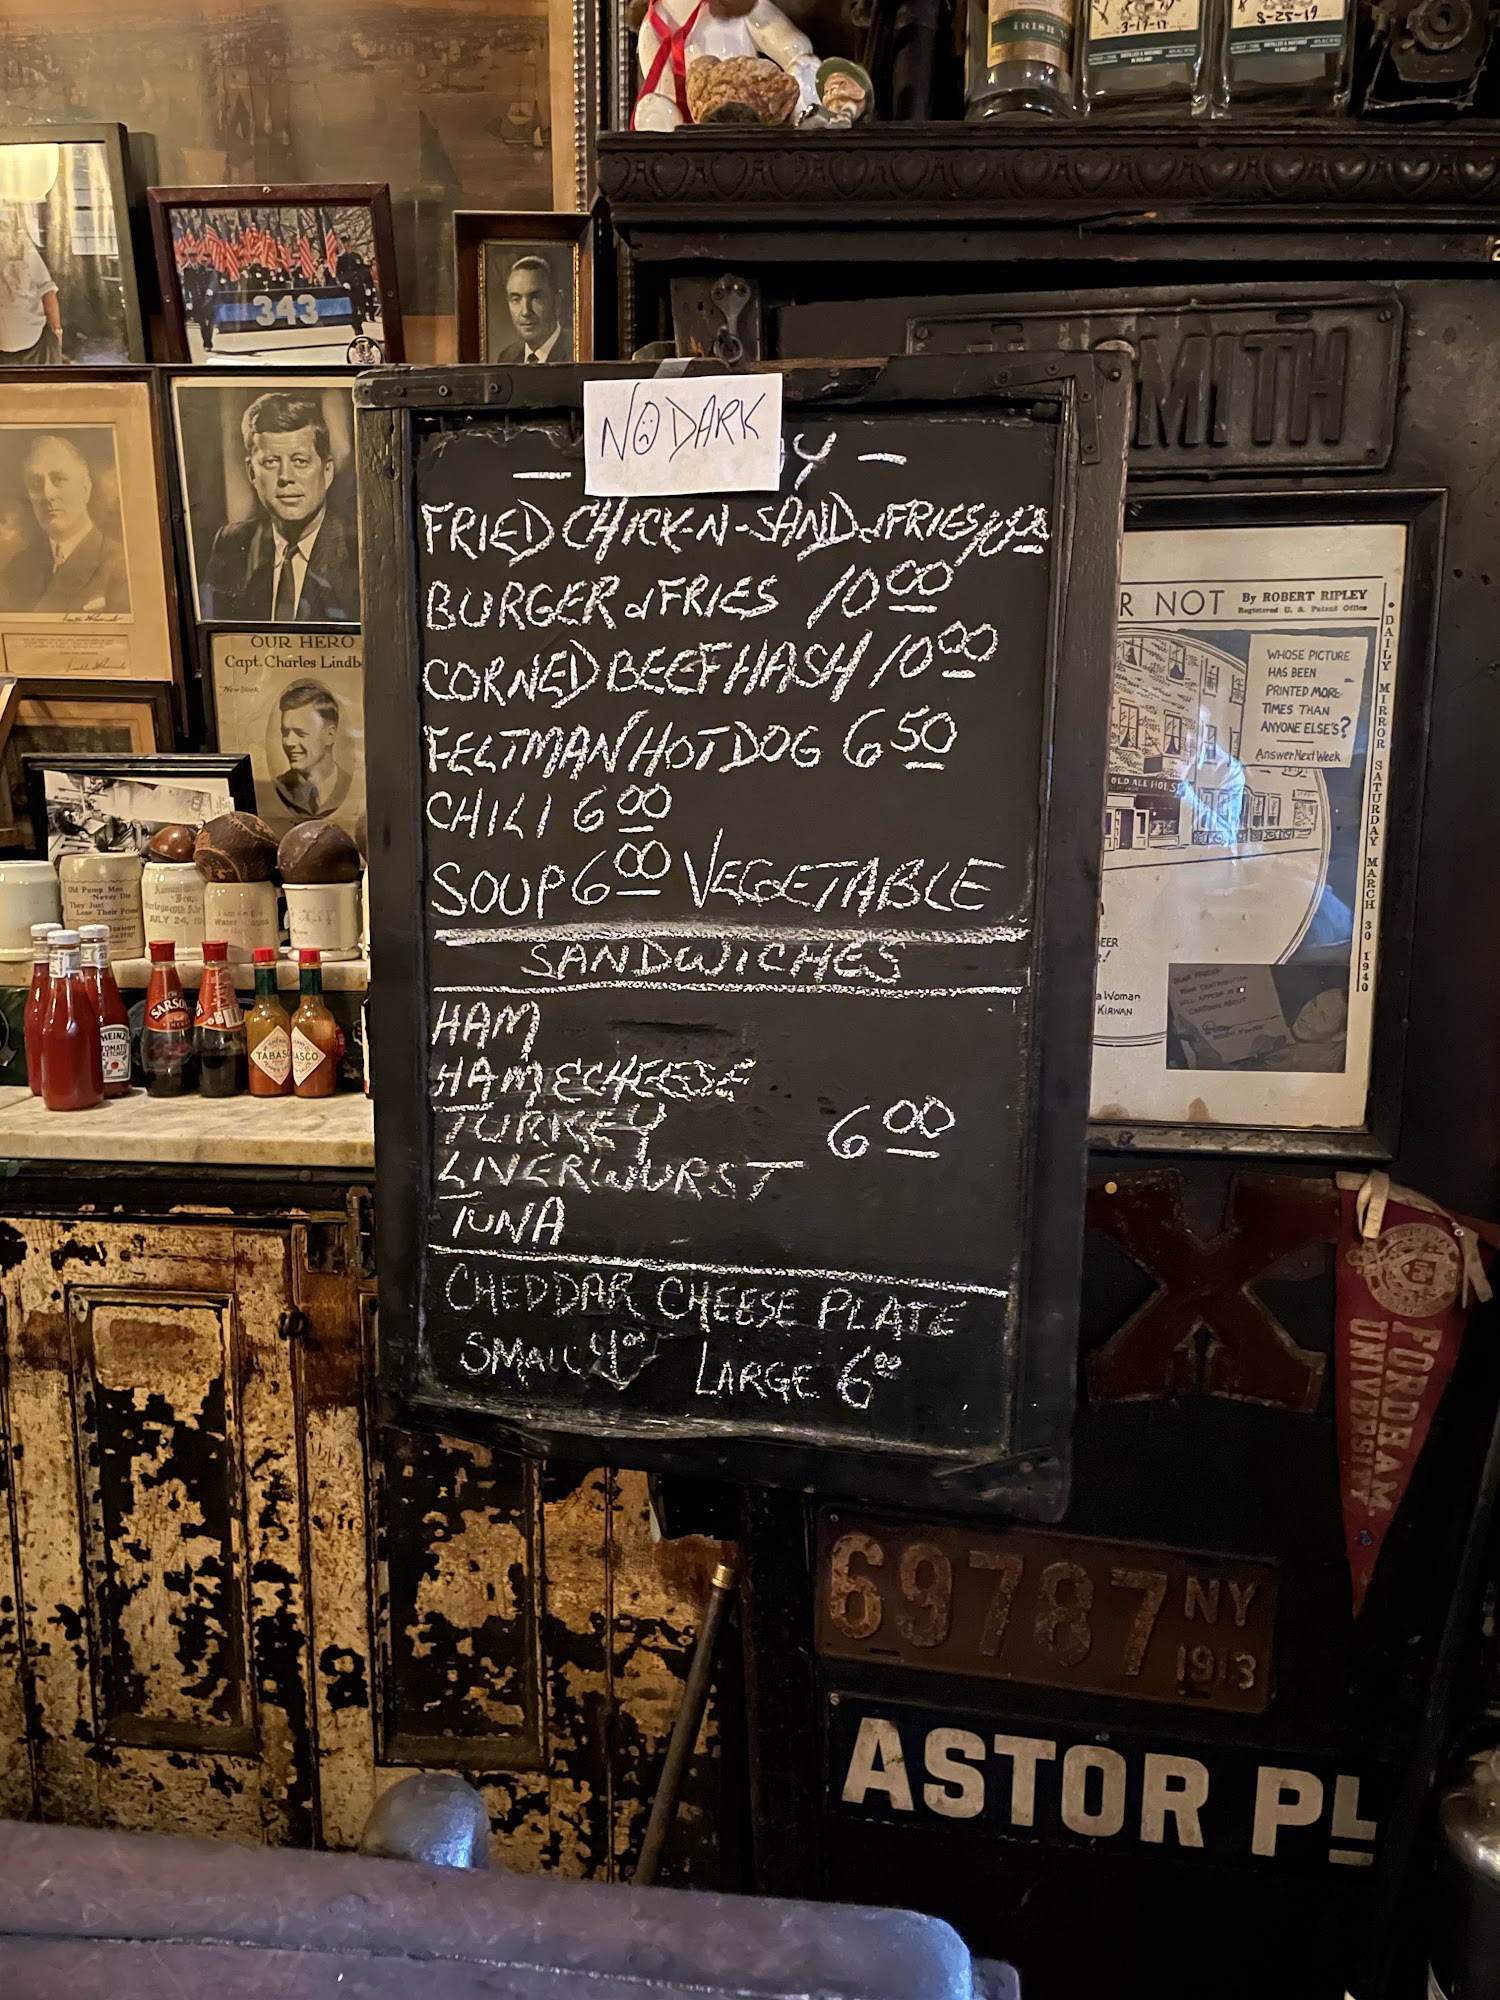 IRISH
3-17-17
8-25-19
343
SMITH
NO DARK
Y
FRIED CHICK-N-SAND FRIES
BURGER FRIES 10 00
CORNED BEEF HASH 10 00
FELTMAN HOT DOG 6 50
CHILI 6 00
SOUP 6 00 VEGETABLE
SANDWICHES
HAM
HAM & CHEESE
TURKEY
LIVERWURST
6 00
TUNA
CHEDDAR CHEESE PLATE
SMALL 4 00 LARGE 6 00
OUR HERO
Capt. Charles Lindb
Old Pump Men
Never Die
They Just
Lose Their Prime
JULY 24,
HEINZ
TOMATO
KETCHUP
SARSO
TABASC
BASCO
R NOT By ROBERT RIPLEY
Registered U. S. Patent Office
WHOSE PICTURE
HAS BEEN
PRINTED MORE
TIMES THAN
ANYONE ELSE'S?
Answer Next Week
DAILY MIRROR SATURDAY MARCH 30 1940
OLD ALE HOUSE
BEER
a Woman
KIRWAN
X
FORDHAM
UNIVERSITY
69787 NY
1913
ASTOR PL